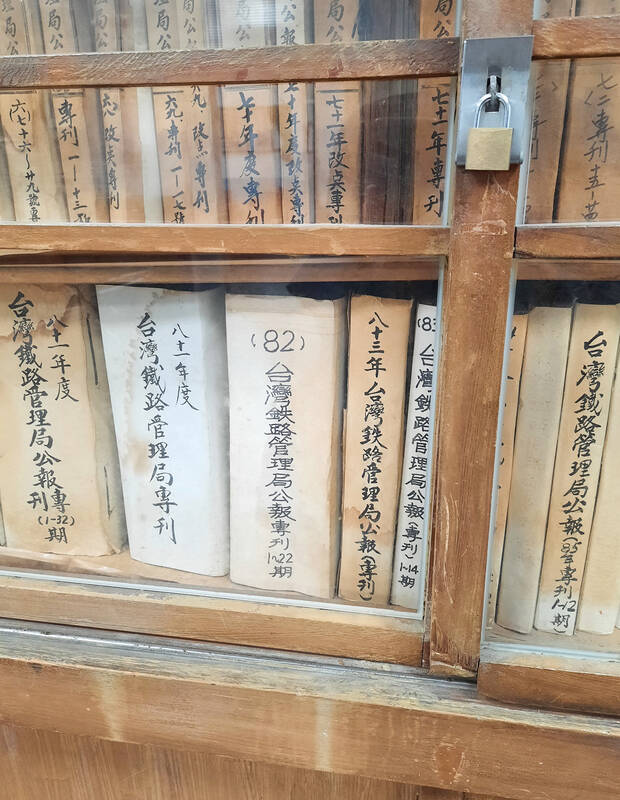 局公
公報
局公報
(六)七十六～廿九號專
專刊一～十三
改点專刊
六九.專刊一～七號
九.改点專刊
七十年度專
十年度改点專
七十一年改点專刊
七十一年專刊
七二專刊
八十一年度
台灣鐵路管理局公報專刊(1-32)期
八十一年度
台灣鐵路管理局專刊
(82)
台灣鉄路管理局公報專刊1~22期
八十三年台灣鉄路管理局公報(專刊)
(83
台灣鉄路管理局公報(專刊)1~14期
台灣鐵路管理局公報(85年專刊1~12期)